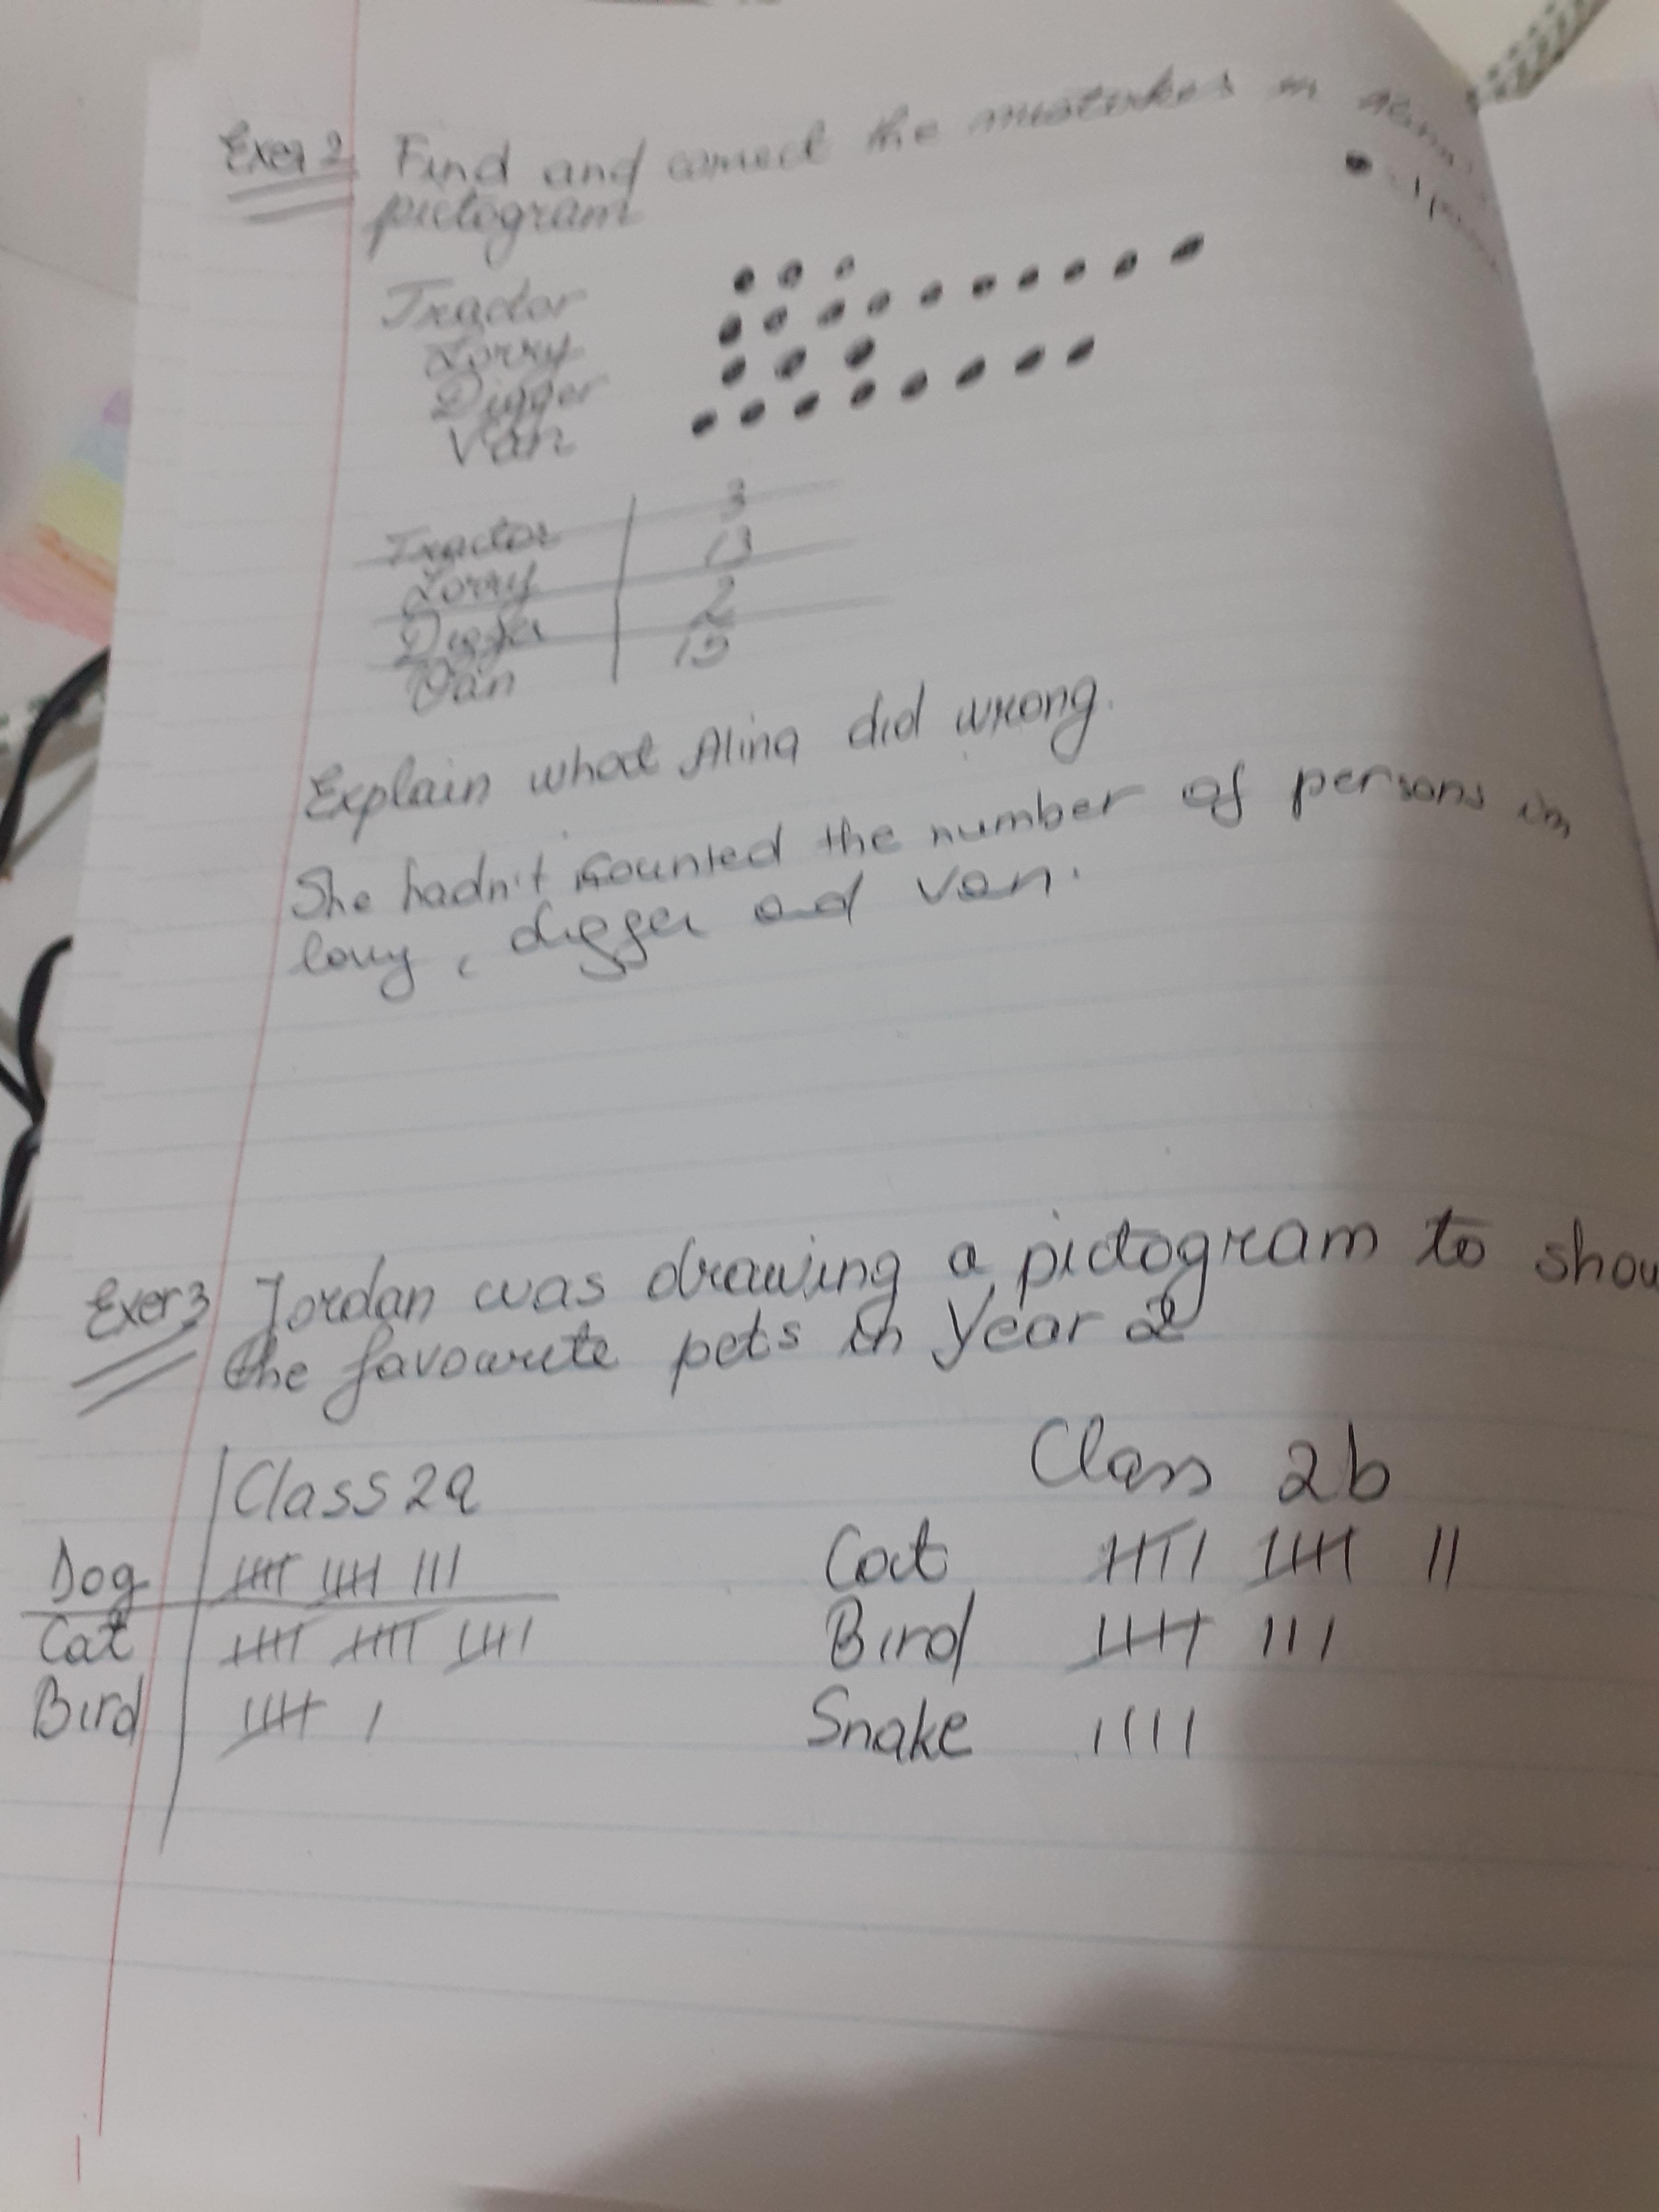 Exer 2 Find and correct the mistakes in
pictogram
Tractor
Lorry
Digger
Van
Tractor 3
Lorry 13
Digger 2
Van 15
Explain what Alina did wrong.
She hadn't counted the number of persons in
lorry, digger and van.
Exer 3 Jordan was drawing a pictogram to show
the favourite pets in Year 2
Class 2a Class 2b
Dog Cat
Cat Bird
Bird Snake